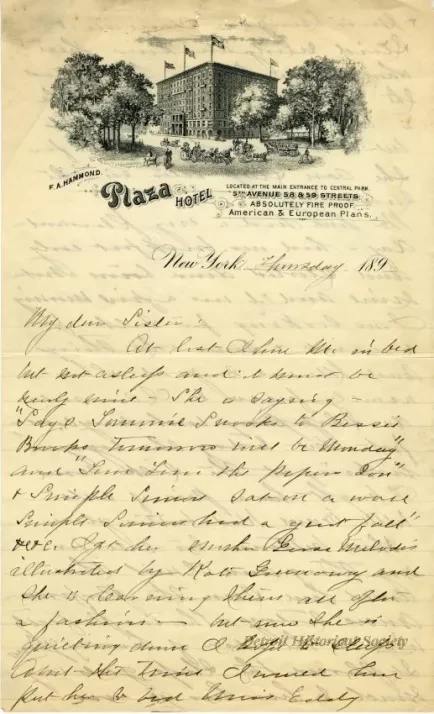 F. A. HAMMOND.
Plaza HOTEL
LOCATED AT THE MAIN ENTRANCE TO CENTRAL PARK.
5TH AVENUE 58 & 59 STREETS
ABSOLUTELY FIRE PROOF
American & European Plans.
New York, Thursday 189
My dear Sister :
At last I have in bed
but not asleep and it must be
nearly nine - She is saying -
"Says Tommie Snooks to Bessie
Brooks, Tomorrow will be Monday"
and "Tom Tom the Pipers Son"
& Simple Simon sat on a wall
Simple Simon had a great fall"
&c&c. I got her Goose Melodies
illustrated by Kate Greenaway and
she is learning them all after
a fashion - but now she is
quieting down I
about this time I
put her to bed Miss Eddy
Detroit Historical Society